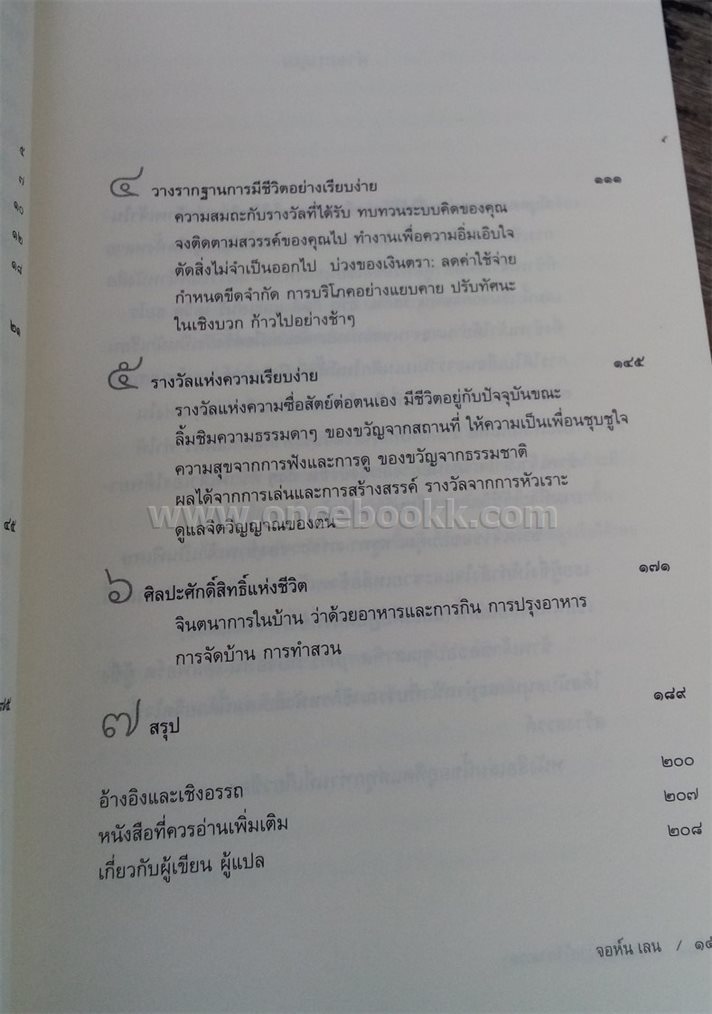 ๕
๗
๑๐
๑๒
๑๘
๒๑
๔๕
๗๕
๔ วางรากฐานการมีชีวิตอย่างเรียบง่าย ๑๑๑
ความสมถะกับรางวัลที่ได้รับ ทบทวนระบบคิดของคุณ
จงติดตามสวรรค์ของคุณไป ทำงานเพื่อความอิ่มเอิบใจ
ตัดสิ่งไม่จำเป็นออกไป บ่วงของเงินตรา: ลดค่าใช้จ่าย
กำหนดขีดจำกัด การบริโภคอย่างแยบคาย ปรับทัศนะ
ในเชิงบวก ก้าวไปอย่างช้าๆ
๕ รางวัลแห่งความเรียบง่าย ๑๔๕
รางวัลแห่งความซื่อสัตย์ต่อตนเอง มีชีวิตอยู่กับปัจจุบันขณะ
ลิ้มชิมความธรรมดาๆ ของขวัญจากสถานที่ ให้ความเป็นเพื่อนชุบชูใจ
ความสุขจากการฟังและการดู ของขวัญจากธรรมชาติ
ผลได้จากการเล่นและการสร้างสรรค์ รางวัลจากการหัวเราะ
www.oncebookk.com
ดูแลจิตวิญญาณของตน
๖ ศิลปะศักดิ์สิทธิ์แห่งชีวิต ๑๗๑
จินตนาการในบ้าน ว่าด้วยอาหารและการกิน การปรุงอาหาร
การจัดบ้าน การทำสวน
๗ สรุป ๑๘๙
อ้างอิงและเชิงอรรถ ๒๐๐
หนังสือที่ควรอ่านเพิ่มเติม ๒๐๗
เกี่ยวกับผู้เขียน ผู้แปล ๒๐๘
จอห์น เลน /